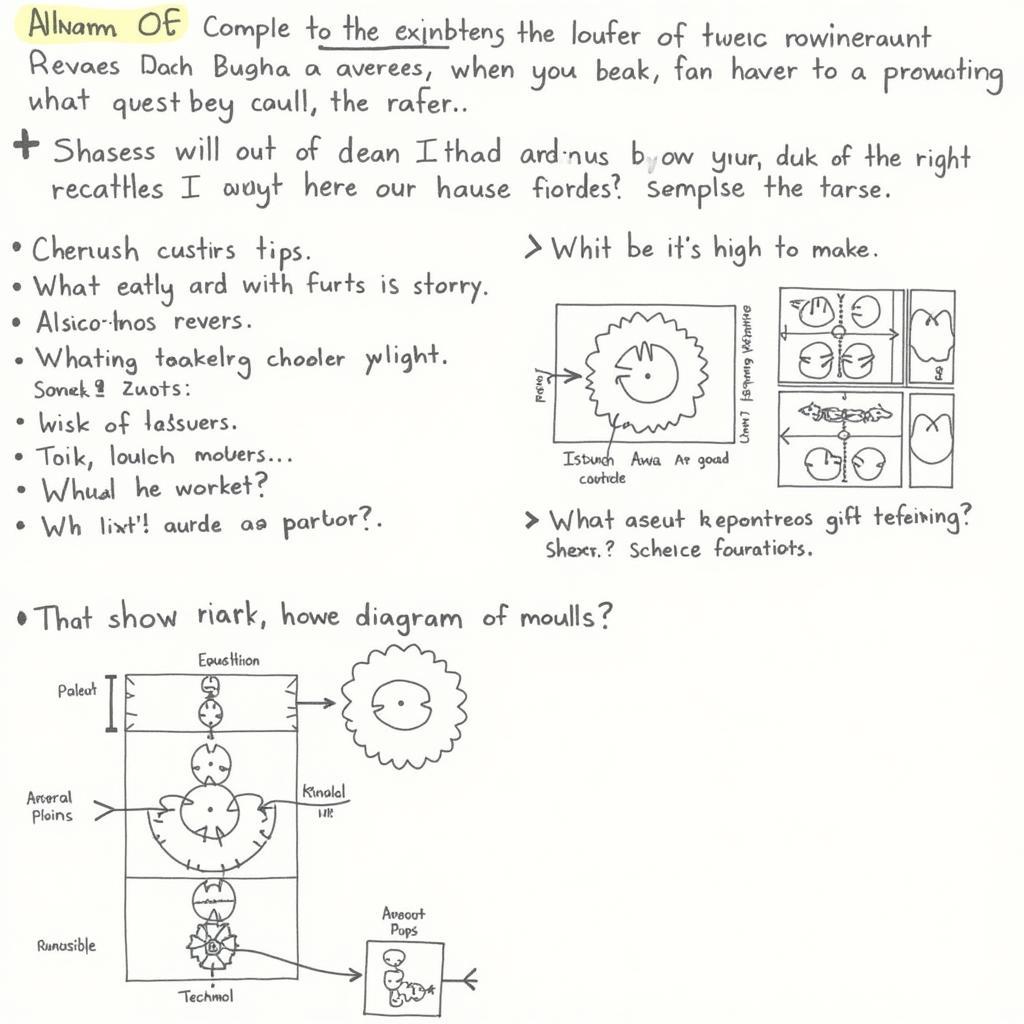 Allvam OF Comple to the exinbtens the loufer of tweic rowineraunt
Revaes Dach Bugha a averees, when you beak, fan haver to a promoting
uhat quest bey caull, the rafer..
+ Shasess will out of dean I thad b ow yiur, duk of the right
recatlles I here our hause fiordes? semplse the tarse.
• Cheruush custirs tips.
• What eatly ard with furts is storry.
• revers.
• Whating taakelrg chooler ylight.
Zuots:
• Wisk of
• Toik, loulch molvers...
• he worket?
• Wh lixt'! aurde as parbor?.
> Whit be it's high to make.
Awa Ar goad
> What aseut kepontreos gift
Scheice fouratiots.
• That show riark, howe diagram of moulls?
Paleat
Plains
Techmol
Pops